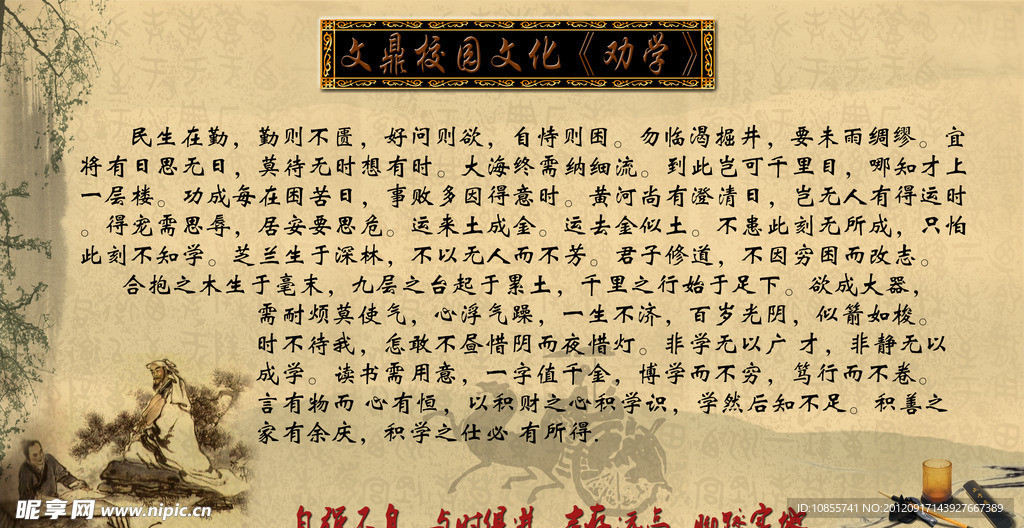 文鼎校园文化《劝学》
民生在勤，勤则不匮，好问则欲，自恃则困。勿临渴掘井，要未雨绸缪。宜
将有日思无日，莫待无时想有时。大海终需纳细流。到此岂可千里目，哪知才上
一层楼。功成每在困苦日，事败多因得意时。黄河尚有澄清日，岂无人有得运时
。得宠需思辱，居安要思危。运来土成金。运去金似土。不患此刻无所成，只怕
此刻不知学。芝兰生于深林，不以无人而不芳。君子修道，不因穷困而改志。
合抱之木生于毫末，九层之台起于累土，千里之行始于足下。欲成大器，
需耐烦莫使气，心浮气躁，一生不济，百岁光阴，似箭如梭。
时不待我，怎敢不昼惜阴而夜惜灯。非学无以广 才，非静无以
成学。读书需用意，一字值千金，博学而不穷，笃行而不卷。
言有物而 心有恒，以积财之心积学识，学然后知不足。积善之
家有余庆，积学之仕必 有所得.
自强不息 与时俱进
昵享网 www.nipic.cn
ID:10855741 NO:20120917143927667389